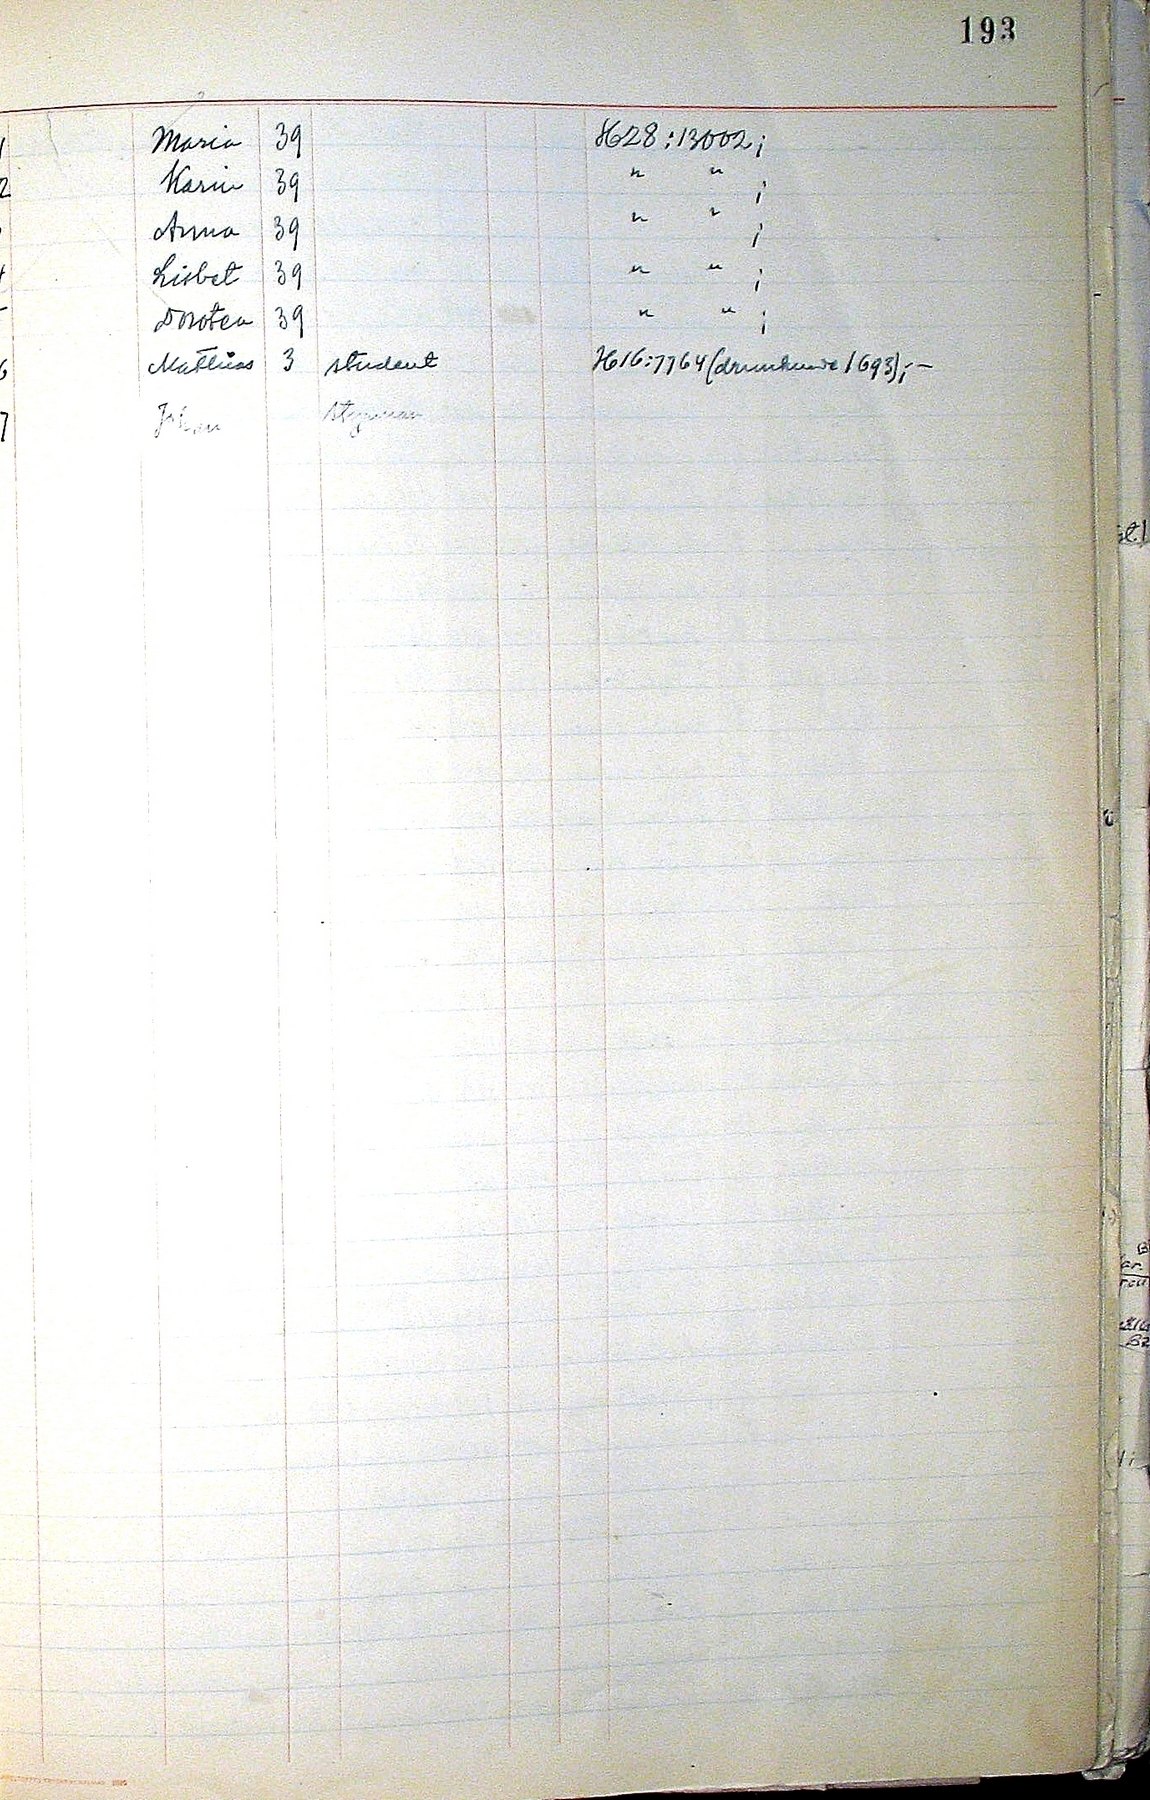 193
1 Maria 39 H28:13002;
2 Karin 39 " " ;
Anna 39 " " ;
4 Lisbet 39 " " ;
Dorotea 39 " " ;
6 Mathias 3 student H16:7764 (drunknade 1693); –
7 Johan styrman